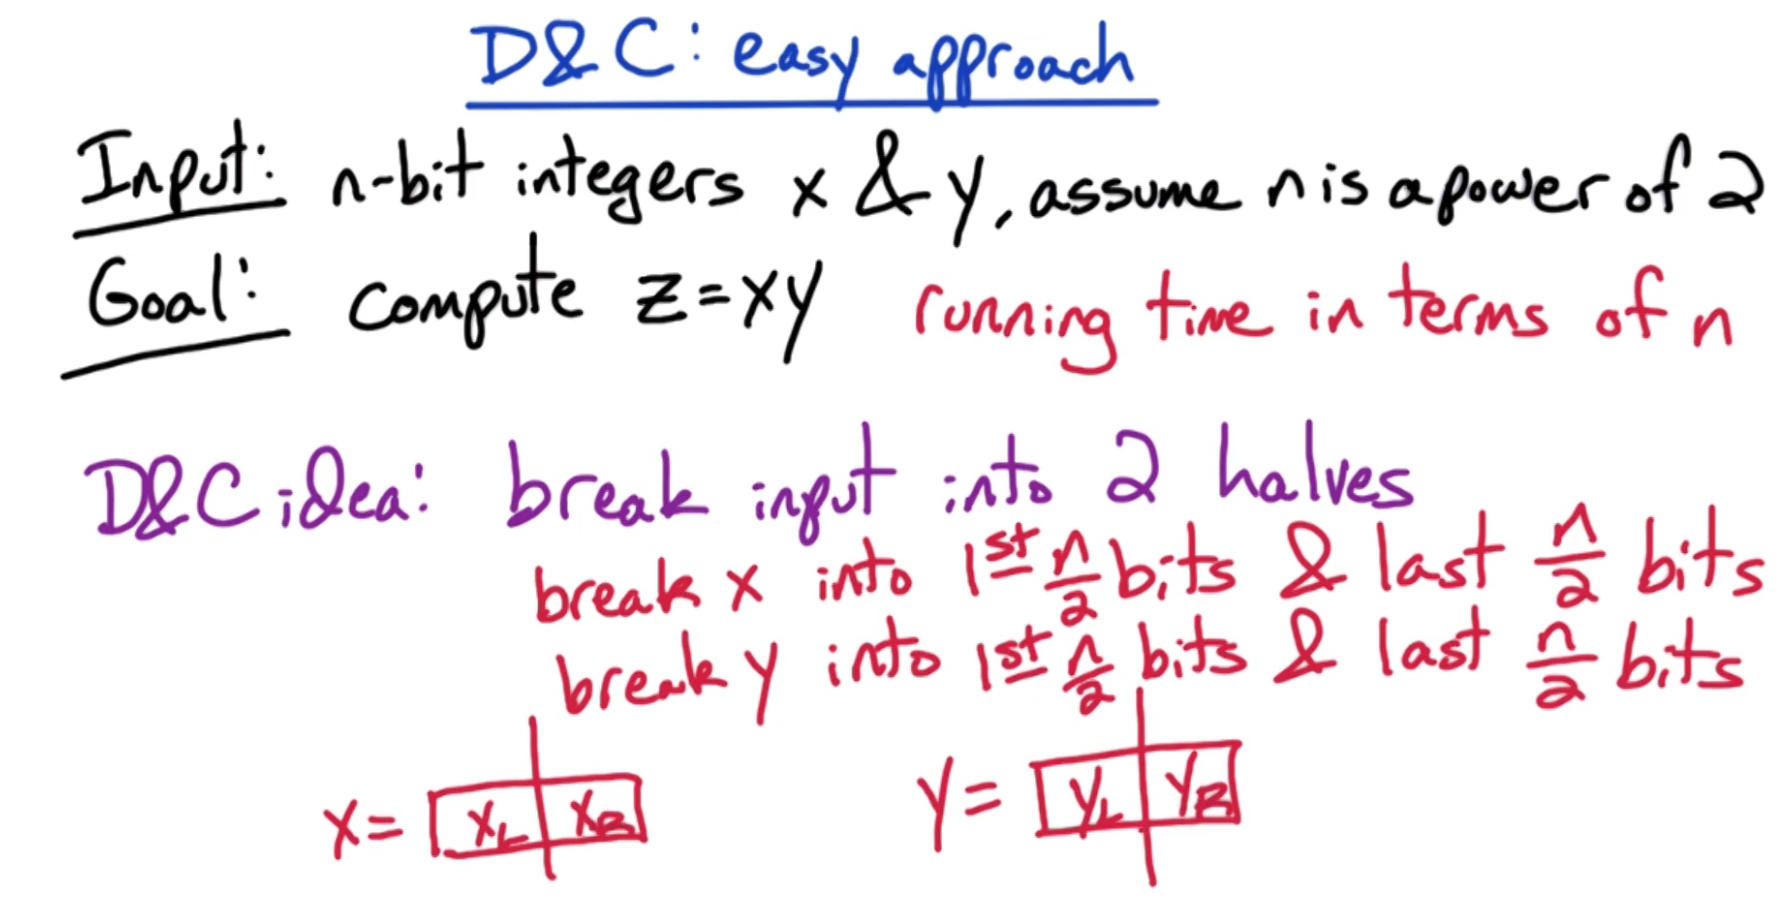 D&C: easy approach
Input: n-bit integers x & y, assume n is a power of 2
Goal: compute z = xy running time in terms of n
D&C idea: break input into 2 halves
break x into 1st n/2 bits & last n/2 bits
break y into 1st n/2 bits & last n/2 bits
x = x_L x_R y = y_L y_R